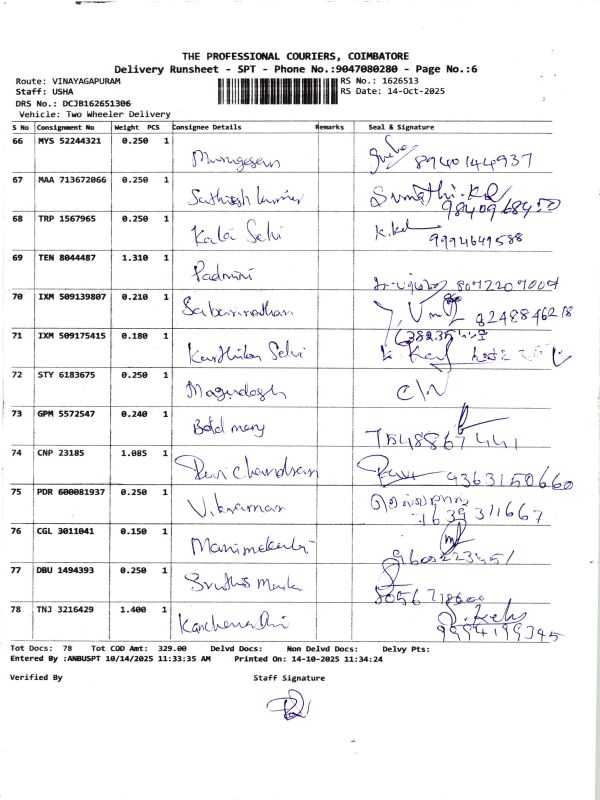 THE PROFESSIONAL COURIERS, COIMBATORE
Delivery Runsheet - SPT - Phone No.:9047080280 - Page No.:6
Route: VINAYAGAPURAM RS No.: 1626513
Staff: USHA RS Date: 14-Oct-2025
DRS No.: DCJB162651306
Vehicle: Two Wheeler Delivery
S No Consignment No Weight PCS Consignee Details Remarks Seal & Signature
66 MYS 52244321 0.250 1 Murugesan 8940144937
67 MAA 713672066 0.250 1 Sathish kumar Sumathi.
68 TRP 1567965 0.250 1 Kala Selvi 9994649588
69 TEN 8044487 1.310 1 Padmini 8072207007
70 IXM 509139807 0.210 1 Sabarinathan
71 IXM 509175415 0.180 1 Karthika Selvi
72 STY 6183675 0.250 1
73 GPM 5572547 0.240 1
74 CNP 23185 1.085 1 Chandran 9363150660
75 PDR 600081937 0.250 1 Vikraman
76 CGL 3011041 0.150 1 Manimekalai
77 DBU 1494393 0.250 1
78 TNJ 3216429 1.400 1 9994199345
Tot Docs: 78 Tot COD Amt: 329.00 Delvd Docs: Non Delvd Docs: Delvy Pts:
Entered By :ANBUSPT 10/14/2025 11:33:35 AM Printed On: 14-10-2025 11:34:24
Verified By Staff Signature